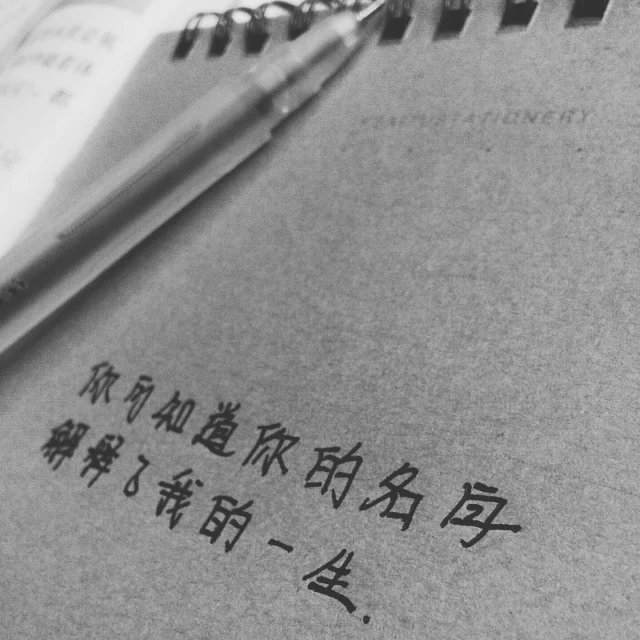 STATIONERY
你可知道你的名字
解释了我的一生.